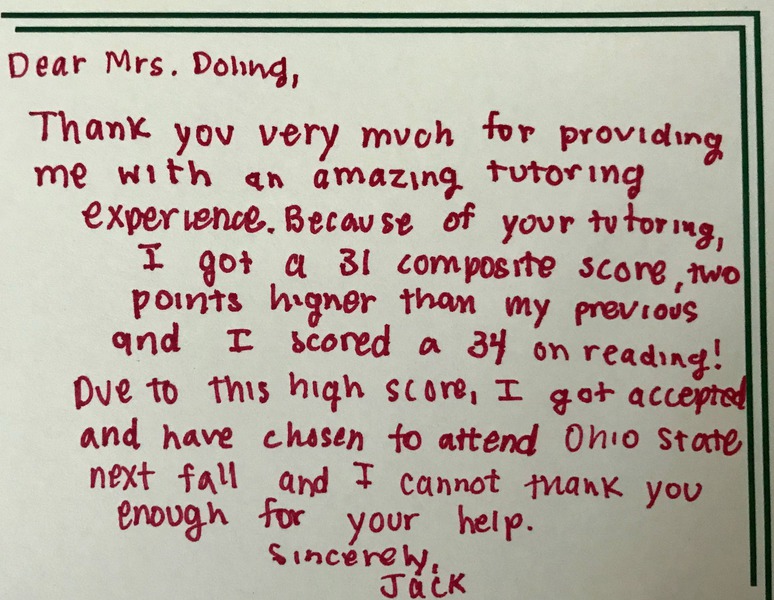 Dear Mrs. Doling,
Thank you very much for providing
me with an amazing tutoring
experience. Because of your tutoring,
I got a 31 composite score, two
points higher than my previous
and I scored a 34 on reading!
Due to this high score, I got accepted
and have chosen to attend Ohio State
next fall and I cannot thank you
enough for your help.
Sincerely,
Jack